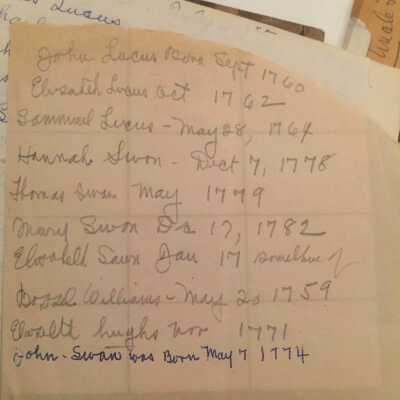 Lucus
John Lucus Born Sept 1760
Elvsateh Lucus Oct 1762
Sammuel Lucus - May 28, 1764
Hannah Swon - Dect 7, 1778
Thomas Swan May 1779
Mary Swon Ds 17, 1782
Elvsabeth Sawn Jan 17 something of
Williams - May 20 1759
hughs Nov 1771
John - Swan was Born May 7 1774